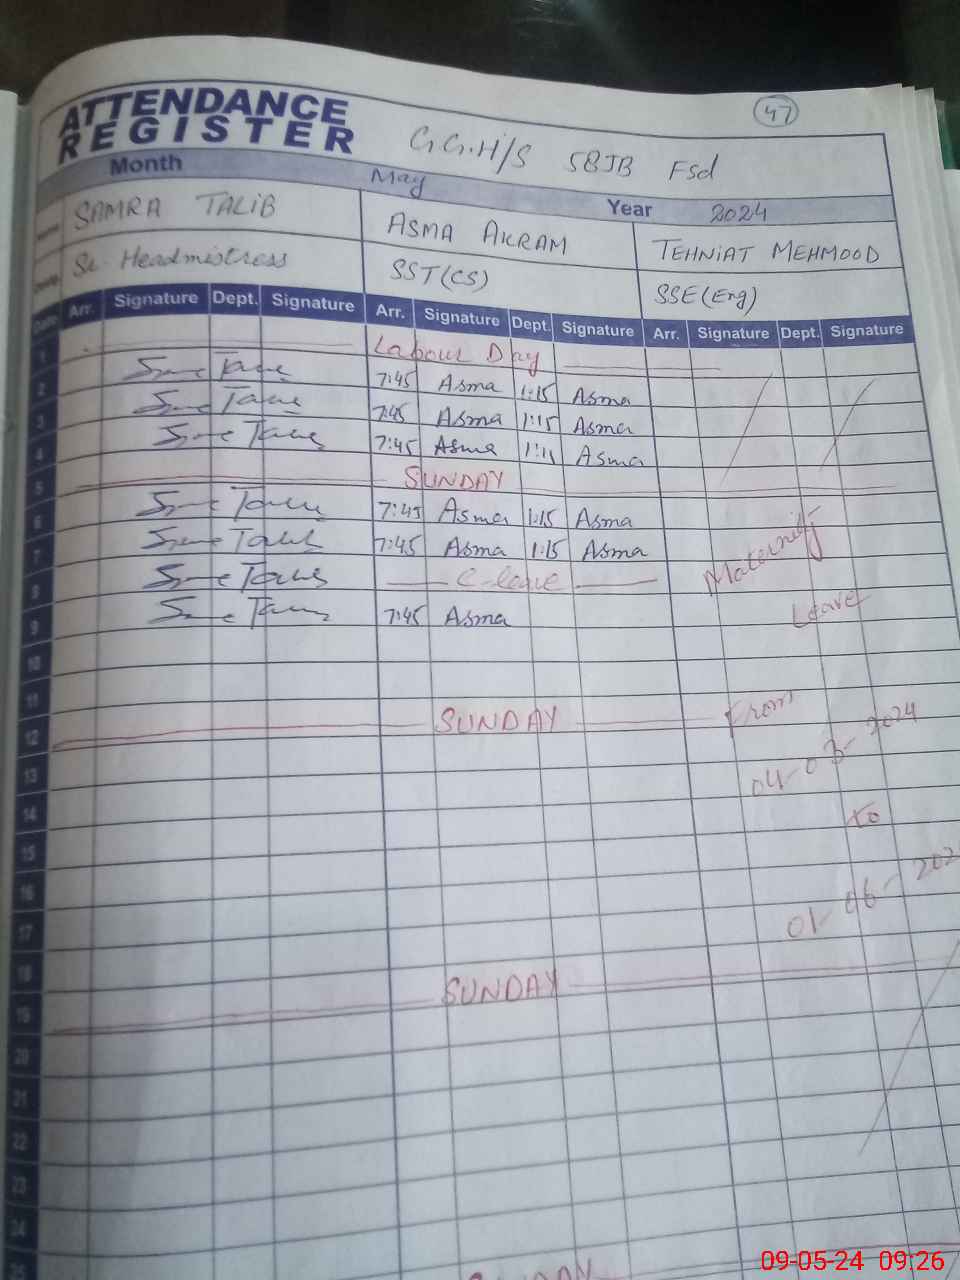 47
ATTENDANCE
REGISTER
G.G.H/S 58JB Fsd
Month May Year 2024
SAMRA TALIB ASMA AKRAM TEHNIAT MEHMOOD
Sr. Headmistress SST(CS) SSE(Eng)
Date Arr. Signature Dept. Signature Arr. Signature Dept. Signature Arr. Signature Dept. Signature
1 Labour Day
2 7:45 Asma 1:15 Asma
3 7:45 Asma 1:15 Asma
4 7:45 Asma 1:15 Asma
5 SUNDAY
6 7:45 Asma 1:15 Asma
7 7:45 Asma 1:15 Asma Maternity
8 C-leave
9 7:45 Asma Leave
10
11
12 SUNDAY From
13 04-03-2024
14
15 to
16
17 01-06-202
18
19 SUNDAY
20
21
22
23
24
25 SUNDAY
09-05-24 09:26